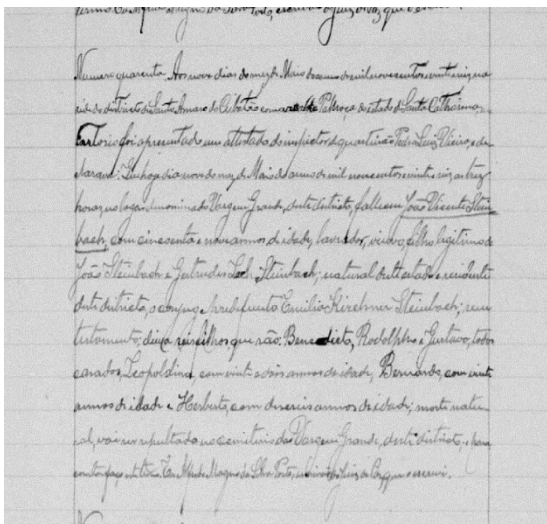 Numero quarenta. Aos nove dias do mez de Maio do anno de mil novecentos e vinte e seis, na
séde do districto de Santo Amaro do Cubatão comarca de Palhoça do estado de Santa Catharina,
Cartorio foi apresentado um attestado do inspector de quarteirão Pedro Luiz Vieira, e de-
clarava: Que hoje dia nove do mez de Maio do anno de mil novecentos e vinte e seis, as trez
horas, no logar denominado Vargem Grande, deste districto, falleceu João Vicente Stein
bach, com cincoenta e nove annos de idade, lavrador, viuvo, filho legitimo de
João Steinbach e Gertrudes Loch Steinbach; natural deste estado e residente
deste districto, o conjuge predefunto Emilia Kirchner Steinbach; sem
testamento, deixa seis filhos que são: Benedicto, Rodolpho e Gustavo, todos
casados, Leopoldina, com vinte e dois annos de idade, Bernardo, com vinte
annos de idade e Herberto, com deseseis annos de idade; morte natu-
ral, vai ser sepultado no cemiterio da Vargem Grande, deste districto, e para
constar faço este termo. Eu, Magno da Silva Porto, escrivão que o escrevi.